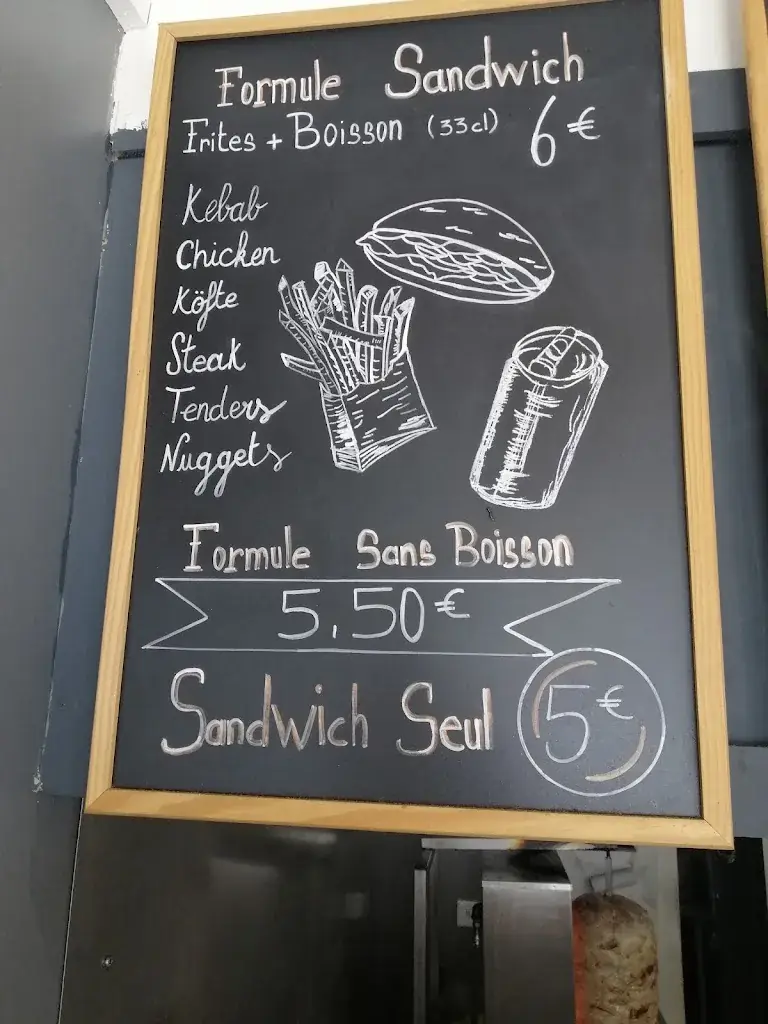 Formule Sandwich
Frites + Boisson (33cl) 6€
Kebab
Chicken
Köfte
Steak
Tenders
Nuggets
Formule Sans Boisson
5,50€
Sandwich Seul 5€